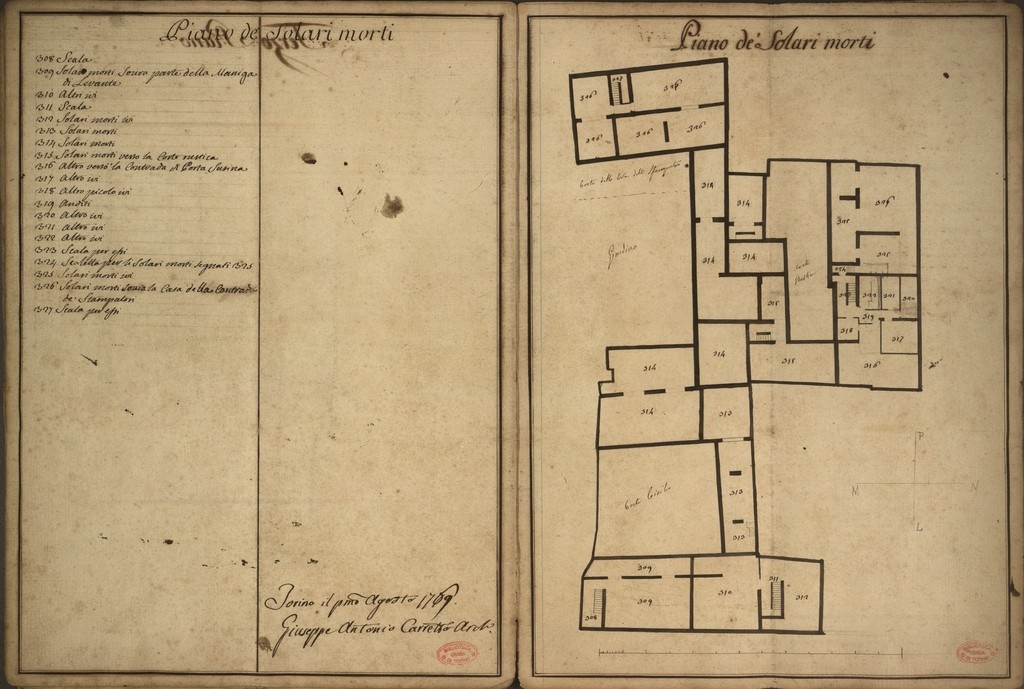 Piano de Solari morti
308 Scala
309 Solari morti Soura parte della Maniga
di Levante
310 Altri ivi
311 Scala
312 Solari morti ivi
313 Solari morti
314 Solari morti
315 Solari morti verso la Corte rustica
316 Altro verso la Contrada di Porta Susina
317 Altro ivi
318 Altro picolo ivi
319 Anditi
320 Altro ivi
321 Altro ivi
322 Altro ivi
323 Scala per essi
324 Scaletta per li Solari morti segnati 325
325 Solari morti ivi
326 Solari morti soura la Casa della Contrada
de Stampatori
327 Scala per essi
Torino il pmo Agosto 1769.
Giuseppe Antonio Carretto Arch.
Piano de' Solari morti
326
327
326
326
326
326
Giardino
314
314
314
314
314
314
314
315
315
325
325
324
319
318
317
316
313
313
313
Corte Civile
309
309
308
310
311
312
P
M
N
L